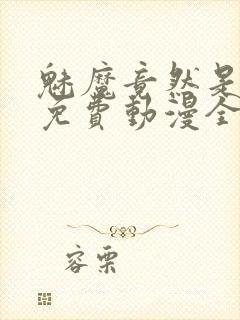 魅魔竟然是
免費動漫全
容栗